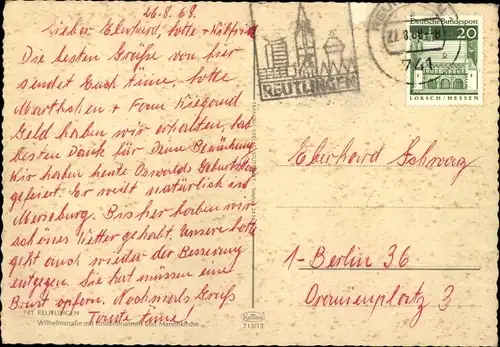 26.8.68.
Lieber Eberhard, Lotte + Wilfried
Die besten Grüße von hier
sendet Euch Eure Lotte
+ Frau Wiegand
Geld haben wir erhalten, hab
besten Dank für Deine Bemühung
Wir haben heute Oswalds Geburtstag
gefeiert. Er weilt natürlich in
Merseburg. Bis her haben wir
schönes Wetter gehabt. Unsere Lotte
geht auch wieder der Besserung
entgegen. Sie hat müssen eine
Brust opfern. Nochmals Gruß
Tante
741 REUTLINGEN
Wilhelmstraße mit Lindenbrunnen und Marienkirche
REUTLINGEN
27.8.68
741
Deutsche Bundespost
20
LORSCH / HESSEN
Eberhard Schwarz
1-Berlin 36
Oranienplatz 3